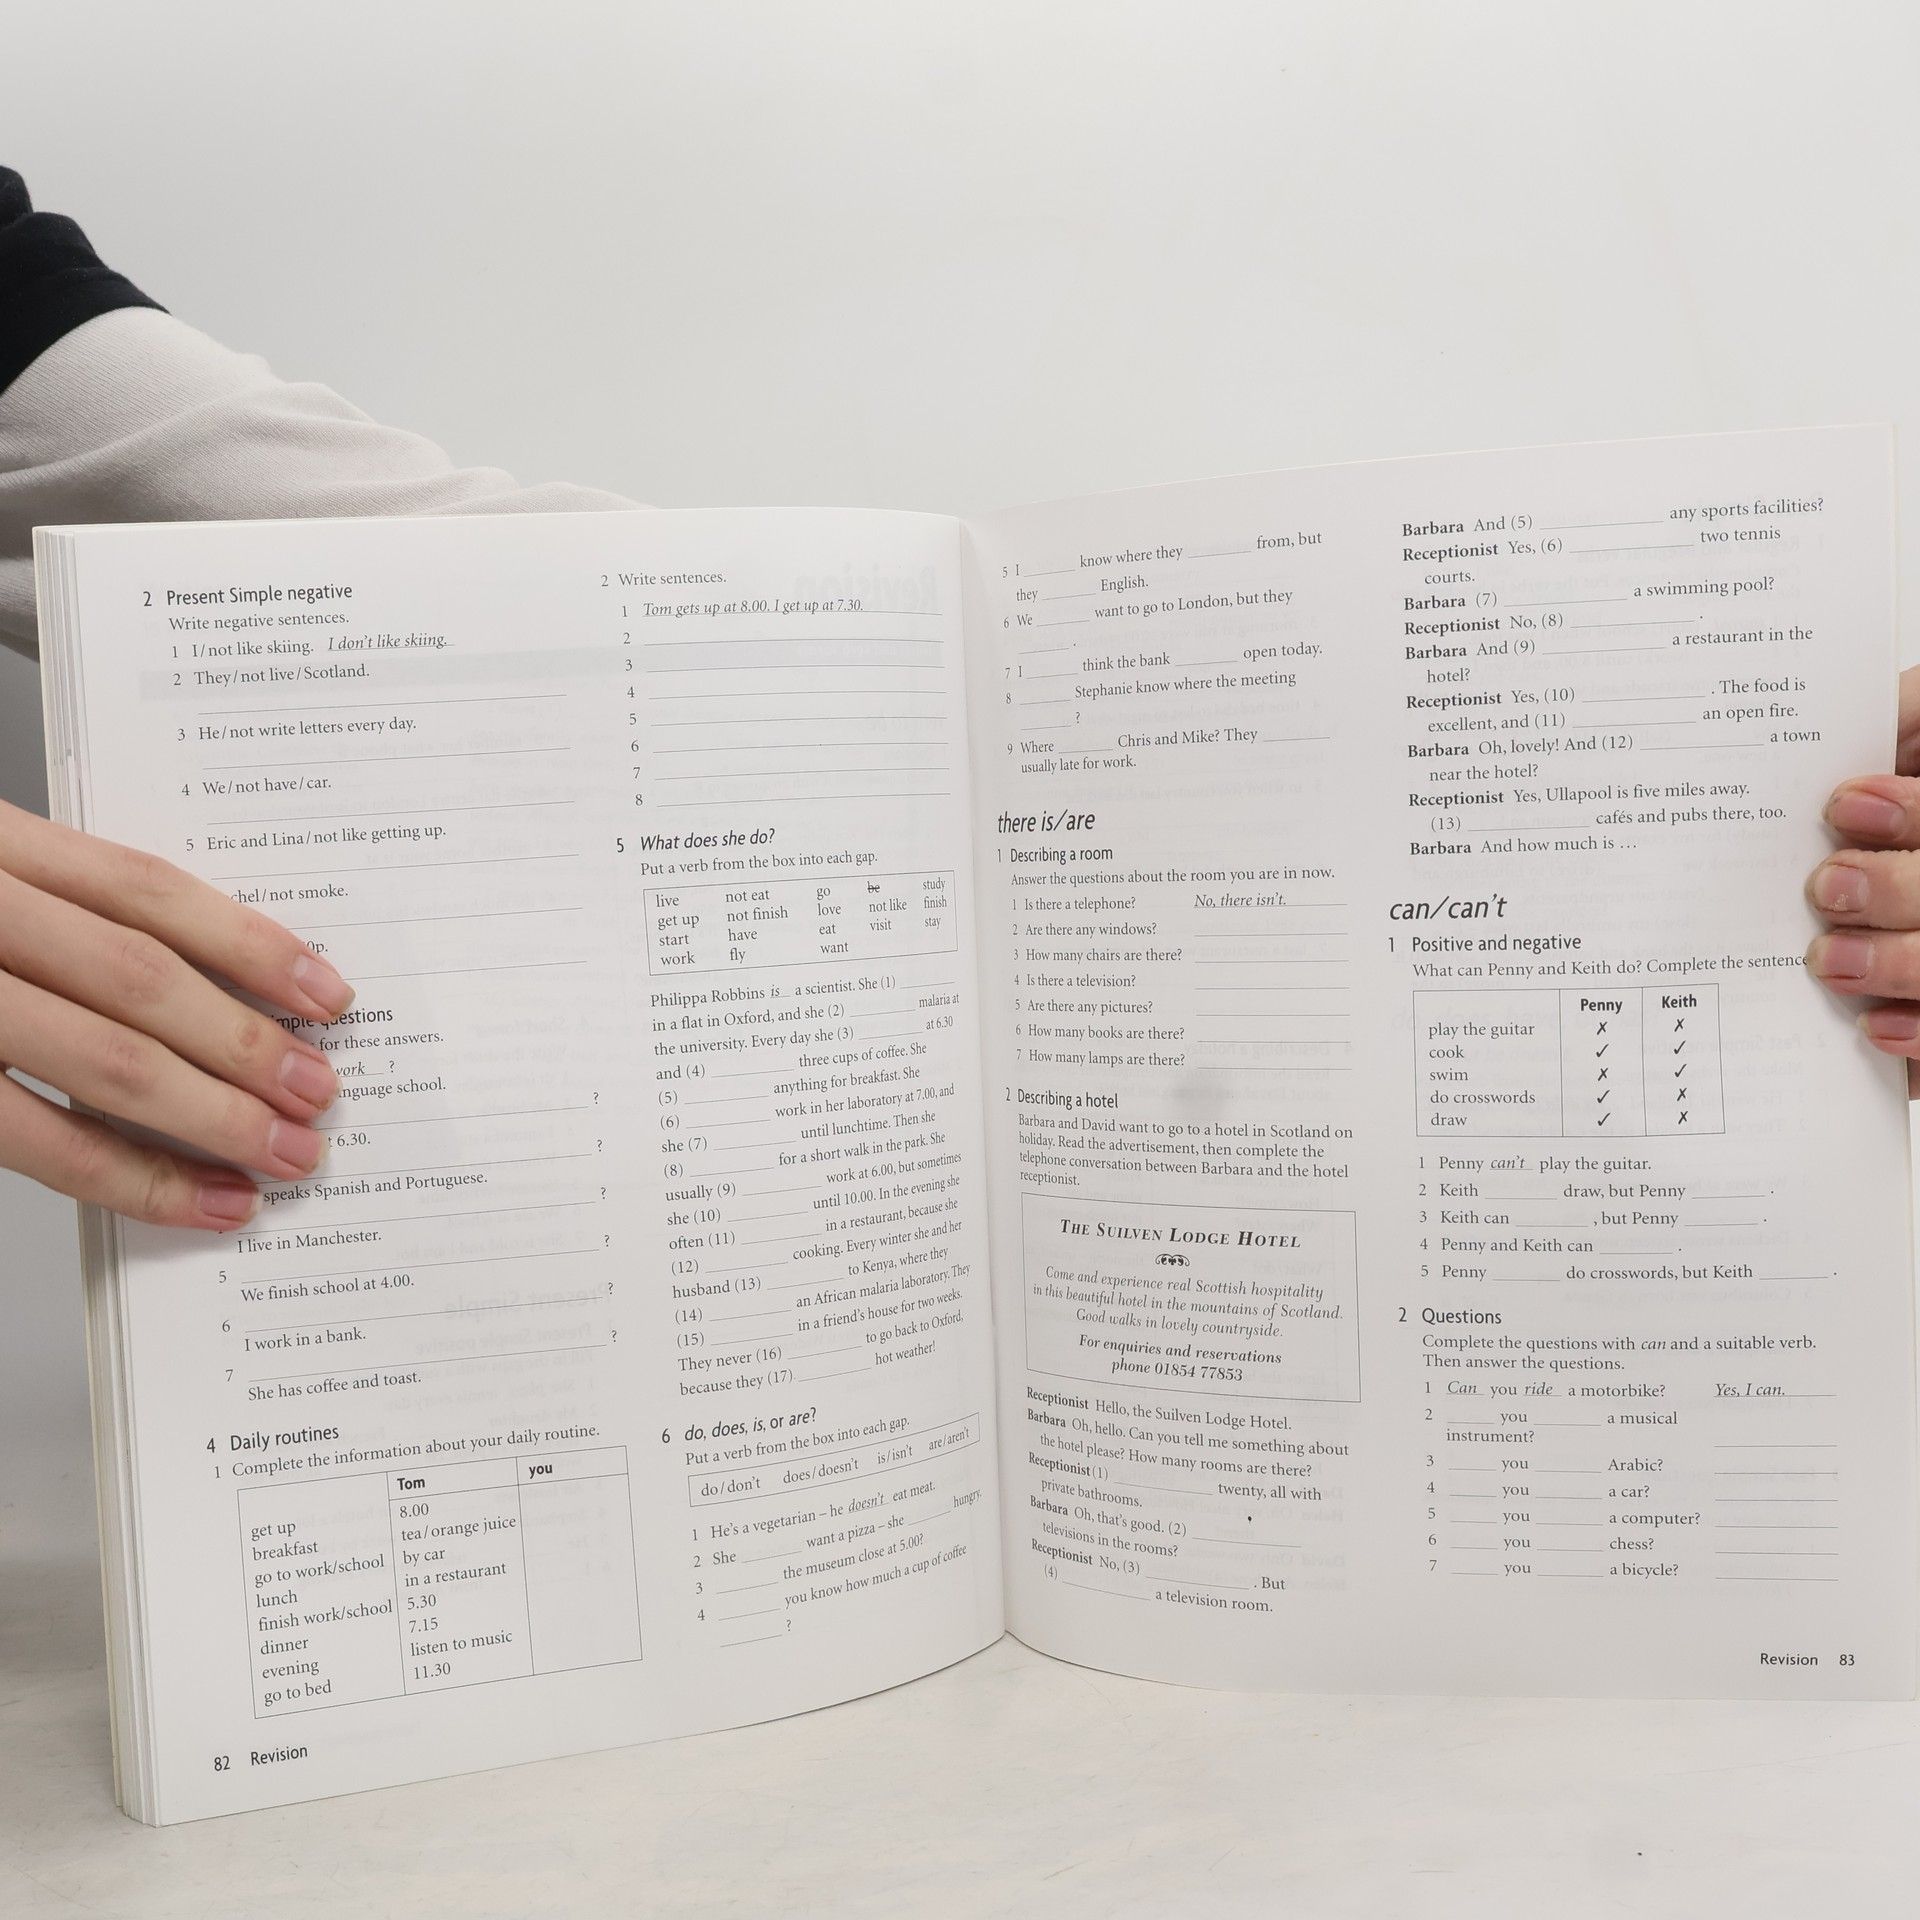 2 Present Simple negative
Write negative sentences.
1 I/not like skiing. I don't like skiing.
2 They/not live/Scotland.
3 He/not write letters every day.
4 We/not have/car.
5 Eric and Lina/not like getting up.
chel/not smoke.
0p.
mple questions
for these answers.
work ?
nguage school.
?
6.30.
?
speaks Spanish and Portuguese.
?
I live in Manchester.
5 ?
We finish school at 4.00.
6 ?
I work in a bank.
7 ?
She has coffee and toast.
4 Daily routines
1 Complete the information about your daily routine.
Tom you
get up 8.00
breakfast tea/orange juice
go to work/school by car
lunch in a restaurant
finish work/school 5.30
dinner 7.15
evening listen to music
go to bed 11.30
82 Revision
2 Write sentences.
1 Tom gets up at 8.00. I get up at 7.30.
2
3
4
5
6
7
8
5 What does she do?
Put a verb from the box into each gap.
live not eat go be study
get up not finish love not like finish
start have eat visit stay
work fly want
Philippa Robbins is a scientist. She (1) ________
in a flat in Oxford, and she (2) ________ malaria at
the university. Every day she (3) ________ at 6.30
and (4) ________ three cups of coffee. She
(5) ________ anything for breakfast. She
(6) ________ work in her laboratory at 7.00, and
she (7) ________ until lunchtime. Then she
(8) ________ for a short walk in the park. She
usually (9) ________ work at 6.00, but sometimes
she (10) ________ until 10.00. In the evening she
often (11) ________ in a restaurant, because she
(12) ________ cooking. Every winter she and her
husband (13) ________ to Kenya, where they
(14) ________ an African malaria laboratory. They
(15) ________ in a friend's house for two weeks.
They never (16) ________ to go back to Oxford,
because they (17) ________ hot weather!
6 do, does, is, or are?
Put a verb from the box into each gap.
do/don't does/doesn't is/isn't are/aren't
1 He's a vegetarian – he doesn't eat meat.
2 She ________ want a pizza – she ________ hungry.
3 ________ the museum close at 5.00?
4 ________ you know how much a cup of coffee
________ ?
5 I ________ know where they ________ from, but
they ________ English.
6 We ________ want to go to London, but they
________ .
7 I ________ think the bank ________ open today.
8 ________ Stephanie know where the meeting
________ ?
9 Where ________ Chris and Mike? They ________
usually late for work.
there is/are
1 Describing a room
Answer the questions about the room you are in now.
1 Is there a telephone? No, there isn't.
2 Are there any windows?
3 How many chairs are there?
4 Is there a television?
5 Are there any pictures?
6 How many books are there?
7 How many lamps are there?
2 Describing a hotel
Barbara and David want to go to a hotel in Scotland on
holiday. Read the advertisement, then complete the
telephone conversation between Barbara and the hotel
receptionist.
THE SUILVEN LODGE HOTEL
Come and experience real Scottish hospitality
in this beautiful hotel in the mountains of Scotland.
Good walks in lovely countryside.
For enquiries and reservations
phone 01854 77853
Receptionist Hello, the Suilven Lodge Hotel.
Barbara Oh, hello. Can you tell me something about
the hotel please? How many rooms are there?
Receptionist (1) ________ twenty, all with
private bathrooms.
Barbara Oh, that's good. (2) ________
televisions in the rooms?
Receptionist No, (3) ________ . But
(4) ________ a television room.
Barbara And (5) ________ any sports facilities?
Receptionist Yes, (6) ________ two tennis
courts.
Barbara (7) ________ a swimming pool?
Receptionist No, (8) ________ .
Barbara And (9) ________ a restaurant in the
hotel?
Receptionist Yes, (10) ________ . The food is
excellent, and (11) ________ an open fire.
Barbara Oh, lovely! And (12) ________ a town
near the hotel?
Receptionist Yes, Ullapool is five miles away.
(13) ________ cafés and pubs there, too.
Barbara And how much is …
can/can't
1 Positive and negative
What can Penny and Keith do? Complete the sentence
Penny Keith
play the guitar ✗ ✗
cook ✓ ✓
swim ✗ ✓
do crosswords ✓ ✗
draw ✓ ✗
1 Penny can't play the guitar.
2 Keith ________ draw, but Penny ________ .
3 Keith can ________ , but Penny ________ .
4 Penny and Keith can ________ .
5 Penny ________ do crosswords, but Keith ________ .
2 Questions
Complete the questions with can and a suitable verb.
Then answer the questions.
1 Can you ride a motorbike? Yes, I can.
2 ________ you ________ a musical
instrument?
3 ________ you ________ Arabic?
4 ________ you ________ a car?
5 ________ you ________ a computer?
6 ________ you ________ chess?
7 ________ you ________ a bicycle?
Revision 83